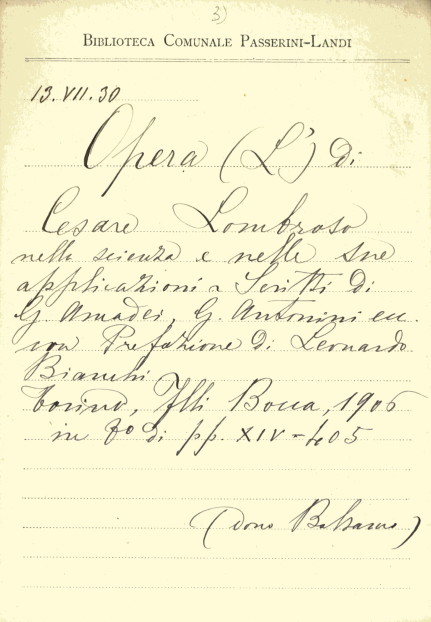 3)
BIBLIOTECA COMUNALE PASSERINI-LANDI
13.VII.30
Opera (L') di
Cesare Lombroso
nella scienza e nelle sue
applicazioni - Scritti di
G. Amadei, G. Antonini ecc.
con Prefazione di Leonardo
Bianchi
Torino, Flli Bocca, 1906
in 8° di pp. XIV-405
(dono Balsamo)